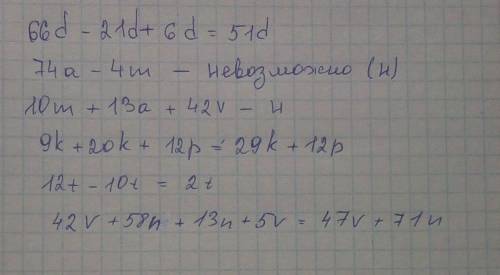 66d - 21d + 6d = 51d
74a - 4m - невозможно (н)
10m + 13a + 42v - н
9k + 20k + 12p = 29k + 12p
12t - 10t = 2t
42v + 58n + 13n + 5v = 47v + 71n